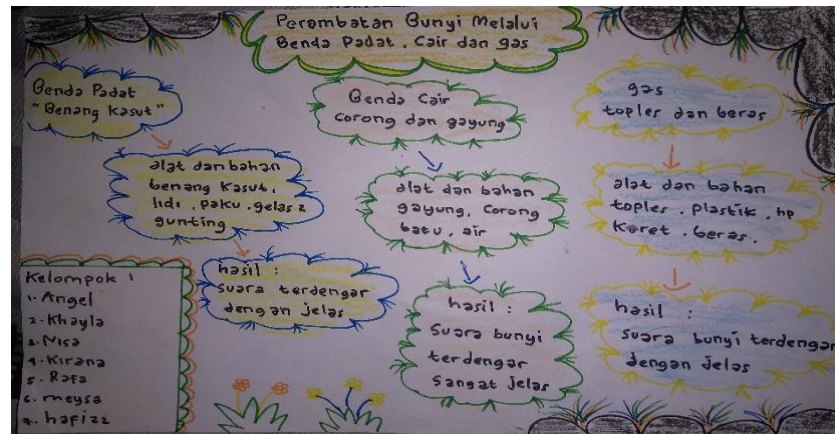 Perambatan Bunyi Melalui
Benda Padat, Cair dan gas
Benda Padat
"Benang Kasut"
alat dan bahan
benang Kasut,
lidi, paku, gelas 2
gunting
hasil :
suara terdengar
dengan jelas
Benda Cair
corong dan gayung
alat dan bahan
gayung, corong
batu, air
hasil :
Suara bunyi
terdengar
Sangat jelas
gas
toples dan beras
alat dan bahan
toples, plastik, hp
Karet, beras.
hasil :
suara bunyi terdengar
dengan jelas
Kelompok 1
1. Angel
2. Khayla
3. Nisa
4. Kirana
5. Rafa
6. meysa
7. hafizz